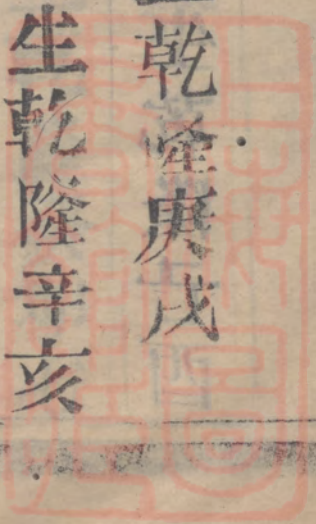 乾隆庚戌
生乾隆辛亥